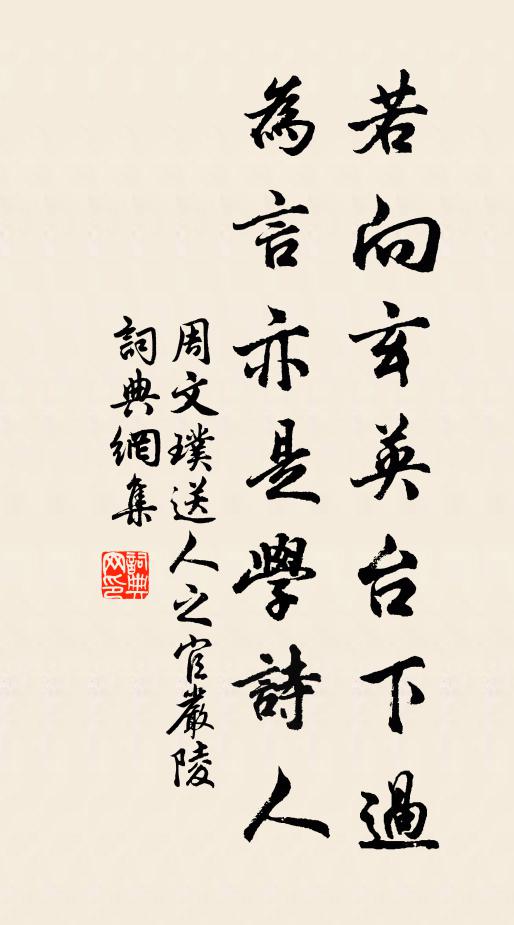 若向玄英台下過
為言亦是學詩人
周文璞送人之官嚴陵
詞典網集
詞典
网印